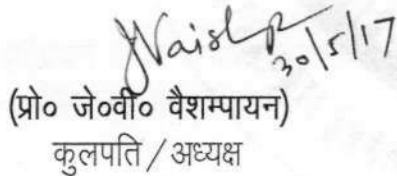 30/5/17
(प्रो० जे०वी० वैशम्पायन)
कुलपति / अध्यक्ष